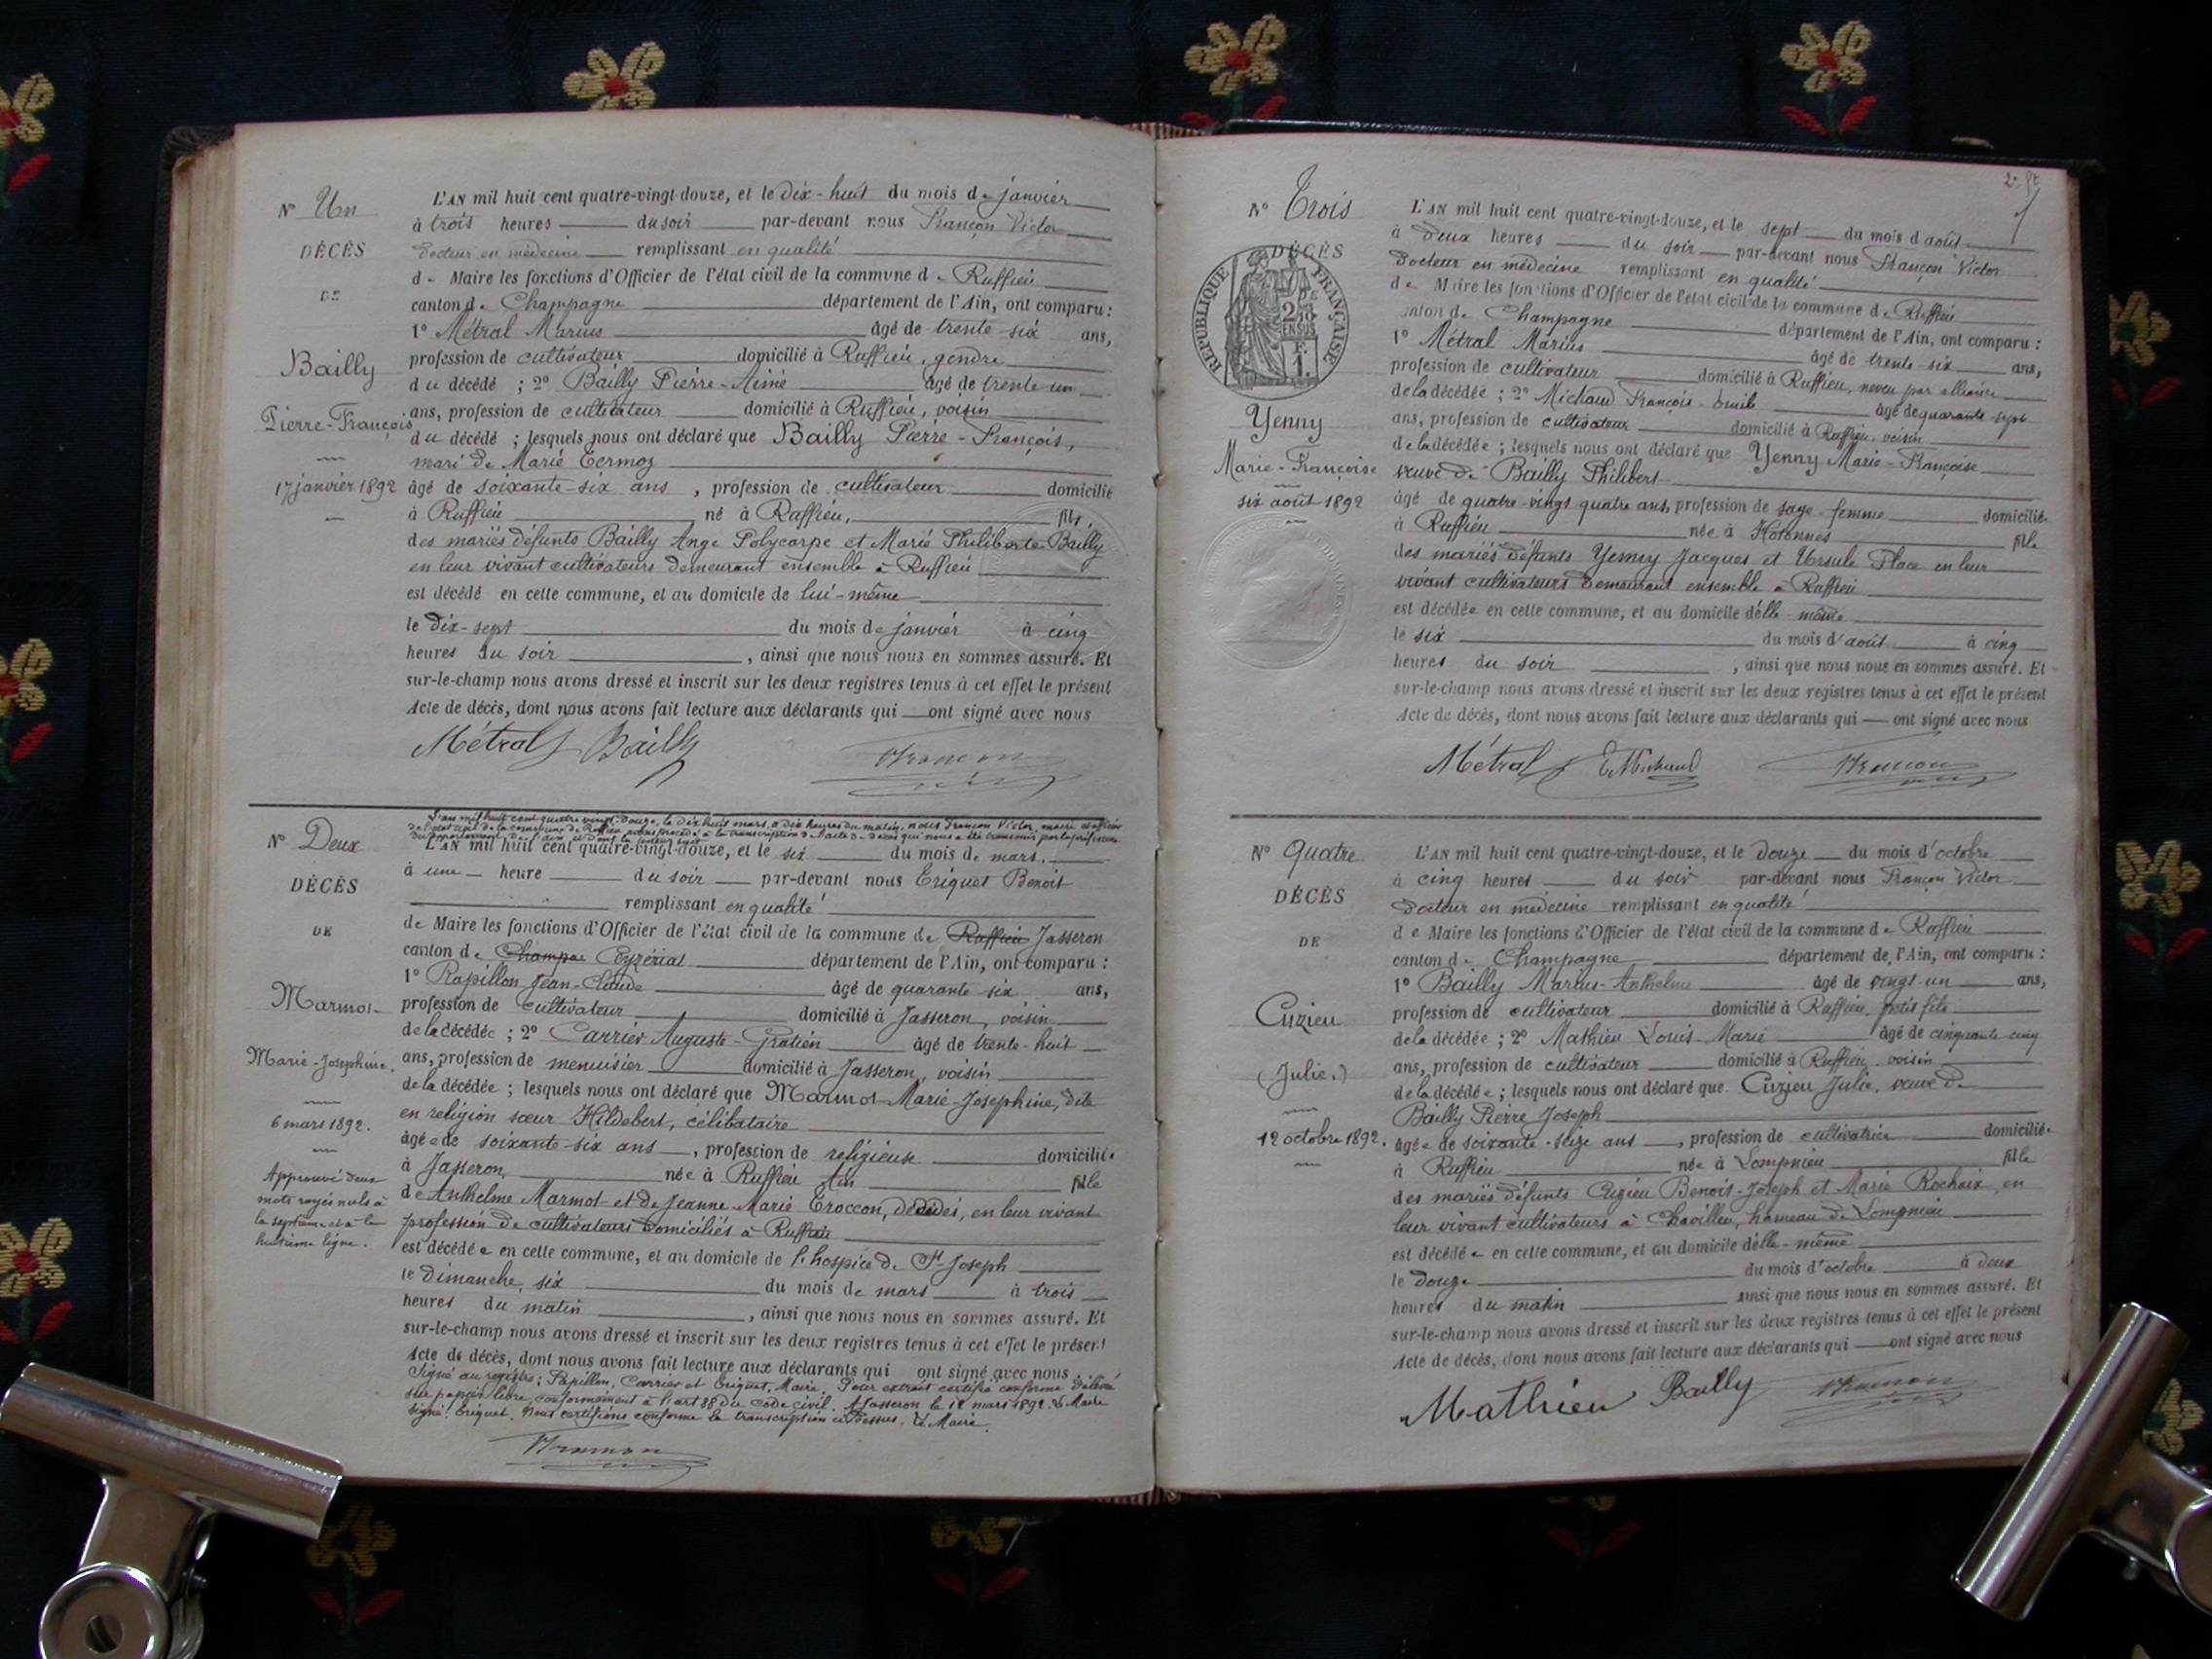 N° Un
DÉCÈS
DE
Bailly
Pierre-François
17 janvier 1892
L'AN mil huit cent quatre-vingt-douze, et le dix-huit du mois de janvier
à trois heures du soir par-devant nous Françon Victor
docteur en médecine remplissant en qualité
de Maire les fonctions d'Officier de l'état civil de la commune de Ruffieu
canton de Champagne département de l'Ain, ont comparu :
1° Métral Marius âgé de trente-six ans,
profession de cultivateur domicilié à Ruffieu, gendre
du décédé ; 2° Bailly Pierre-Aimé âgé de trente un
ans, profession de cultivateur domicilié à Ruffieu, voisin
du décédé ; lesquels nous ont déclaré que Bailly Pierre-François,
mari de Marie Termoz
âgé de soixante-six ans, profession de cultivateur domicilié
à Ruffieu né à Ruffieu, fils,
des mariés défunts Bailly Ange Polycarpe et Marie Philiberte Bailly
en leur vivant cultivateurs demeurant ensemble à Ruffieu
est décédé en cette commune, et au domicile de lui-même
le dix-sept du mois de janvier à cinq
heures du soir, ainsi que nous nous en sommes assuré. Et
sur-le-champ nous avons dressé et inscrit sur les deux registres tenus à cet effet le présent
Acte de décès, dont nous avons fait lecture aux déclarants qui ont signé avec nous
Métral Bailly Françon
N° Deux
DÉCÈS
DE
Marmot
Marie-Josephine.
6 mars 1892.
Approuvé deux
mots rayés nuls à
la septième et à la
huitième ligne.
L'an mil huit cent quatre vingt-douze, le dix huit mars, à dix heures du matin, nous Françon Victor, maire et officier
de l'état civil de la commune de Ruffieu avons procédé à la transcription de l'acte de décès qui nous a été transmis par la préfecture
du département de l'Ain et dont la teneur suit
L'AN mil huit cent quatre-vingt-douze, et le six du mois de mars.
à une heure du soir par-devant nous Eriquet Benoit
remplissant en qualité
de Maire les fonctions d'Officier de l'état civil de la commune de Ruffieu Jasseron
canton de Champa Ceyzériat département de l'Ain, ont comparu :
1° Papillon Jean-Claude âgé de quarante-six ans,
profession de cultivateur domicilié à Jasseron, voisin
de la décédée ; 2° Carrier Auguste-Gratien âgé de trente-huit
ans, profession de menuisier domicilié à Jasseron, voisin
de la décédée ; lesquels nous ont déclaré que Marmot Marie-Josephine, dite
en religion sœur Hildebert, célibataire
âgée de soixante-six ans, profession de religieuse domiciliée
à Jasseron née à Ruffieu Ain fille
de Anthelme Marmot et de Jeanne Marie Troccon, décédés, en leur vivant
profession de cultivateurs domiciliés à Ruffieu
est décédée en cette commune, et au domicile de l'hospice de St Joseph
le Dimanche, six du mois de mars à trois
heures du matin, ainsi que nous nous en sommes assuré. Et
sur-le-champ nous avons dressé et inscrit sur les deux registres tenus à cet effet le présent
Acte de décès, dont nous avons fait lecture aux déclarants qui ont signé avec nous.
Signé au registre : Papillon, Carrier et Eriquet, Maire. Pour extrait certifié conforme délivré
sur papier libre, conformément à l'art 38 du code civil. A Jasseron le 12 mars 1892. Le Maire
signé : Eriquet. Nous certifions conforme la transcription ci-dessus. Le Maire.
Françon
N° Trois
DÉCÈS
RÉPUBLIQUE FRANÇAISE
Yenny
Marie-Françoise
six août 1892
L'AN mil huit cent quatre-vingt-douze, et le sept du mois d'août
à deux heures du soir par-devant nous Françon Victor
docteur en médecine remplissant en qualité
de Maire les fonctions d'Officier de l'état civil de la commune de Ruffieu
canton de Champagne département de l'Ain, ont comparu :
1° Métral Marius âgé de trente-six ans,
profession de cultivateur domicilié à Ruffieu, neveu par alliance
de la décédée ; 2° Michaud François-Emile âgé de quarante-sept
ans, profession de cultivateur domicilié à Ruffieu, voisin
de la décédée ; lesquels nous ont déclaré que Yenny Marie-Françoise
veuve de Bailly Philibert
âgé de quatre-vingt quatre ans, profession de sage-femme domiciliée
à Ruffieu née à Hotonnes fille
des mariés défunts Yenny Jacques et Ursule Place en leur
vivant cultivateurs demeurant ensemble à Ruffieu
est décédée en cette commune, et au domicile d'elle-même
le six du mois d'août à cinq
heures du soir, ainsi que nous nous en sommes assuré. Et
sur-le-champ nous avons dressé et inscrit sur les deux registres tenus à cet effet le présent
Acte de décès, dont nous avons fait lecture aux déclarants qui ont signé avec nous
Métral E. Michaud Françon
N° Quatre
DÉCÈS
DE
Cuzieu
(Julie.)
12 octobre 1892.
L'AN mil huit cent quatre-vingt-douze, et le douze du mois d'octobre
à cinq heures du soir par-devant nous Françon Victor
docteur en médecine remplissant en qualité
de Maire les fonctions d'Officier de l'état civil de la commune de Ruffieu
canton de Champagne département de l'Ain, ont comparu :
1° Bailly Marius-Anthelme âgé de vingt-un ans,
profession de cultivateur domicilié à Ruffieu, petit fils
de la décédée ; 2° Mathieu Louis-Marie âgé de cinquante cinq
ans, profession de cultivateur domicilié à Ruffieu, voisin
de la décédée ; lesquels nous ont déclaré que Cuzieu Julie, veuve de
Bailly Pierre Joseph
âgée de soixante-seize ans, profession de cultivatrice domiciliée
à Ruffieu née à Lompnieu fille
des mariés défunts Cuzieu Benoit-Joseph et Marie Rochaix, en
leur vivant cultivateurs à Chavillieu, hameau de Lompnieu
est décédée en cette commune, et au domicile d'elle-même
le douze du mois d'octobre à deux
heures du matin ainsi que nous nous en sommes assuré. Et
sur-le-champ nous avons dressé et inscrit sur les deux registres tenus à cet effet le présent
Acte de décès, dont nous avons fait lecture aux déclarants qui ont signé avec nous
Mathieu Bailly Françon